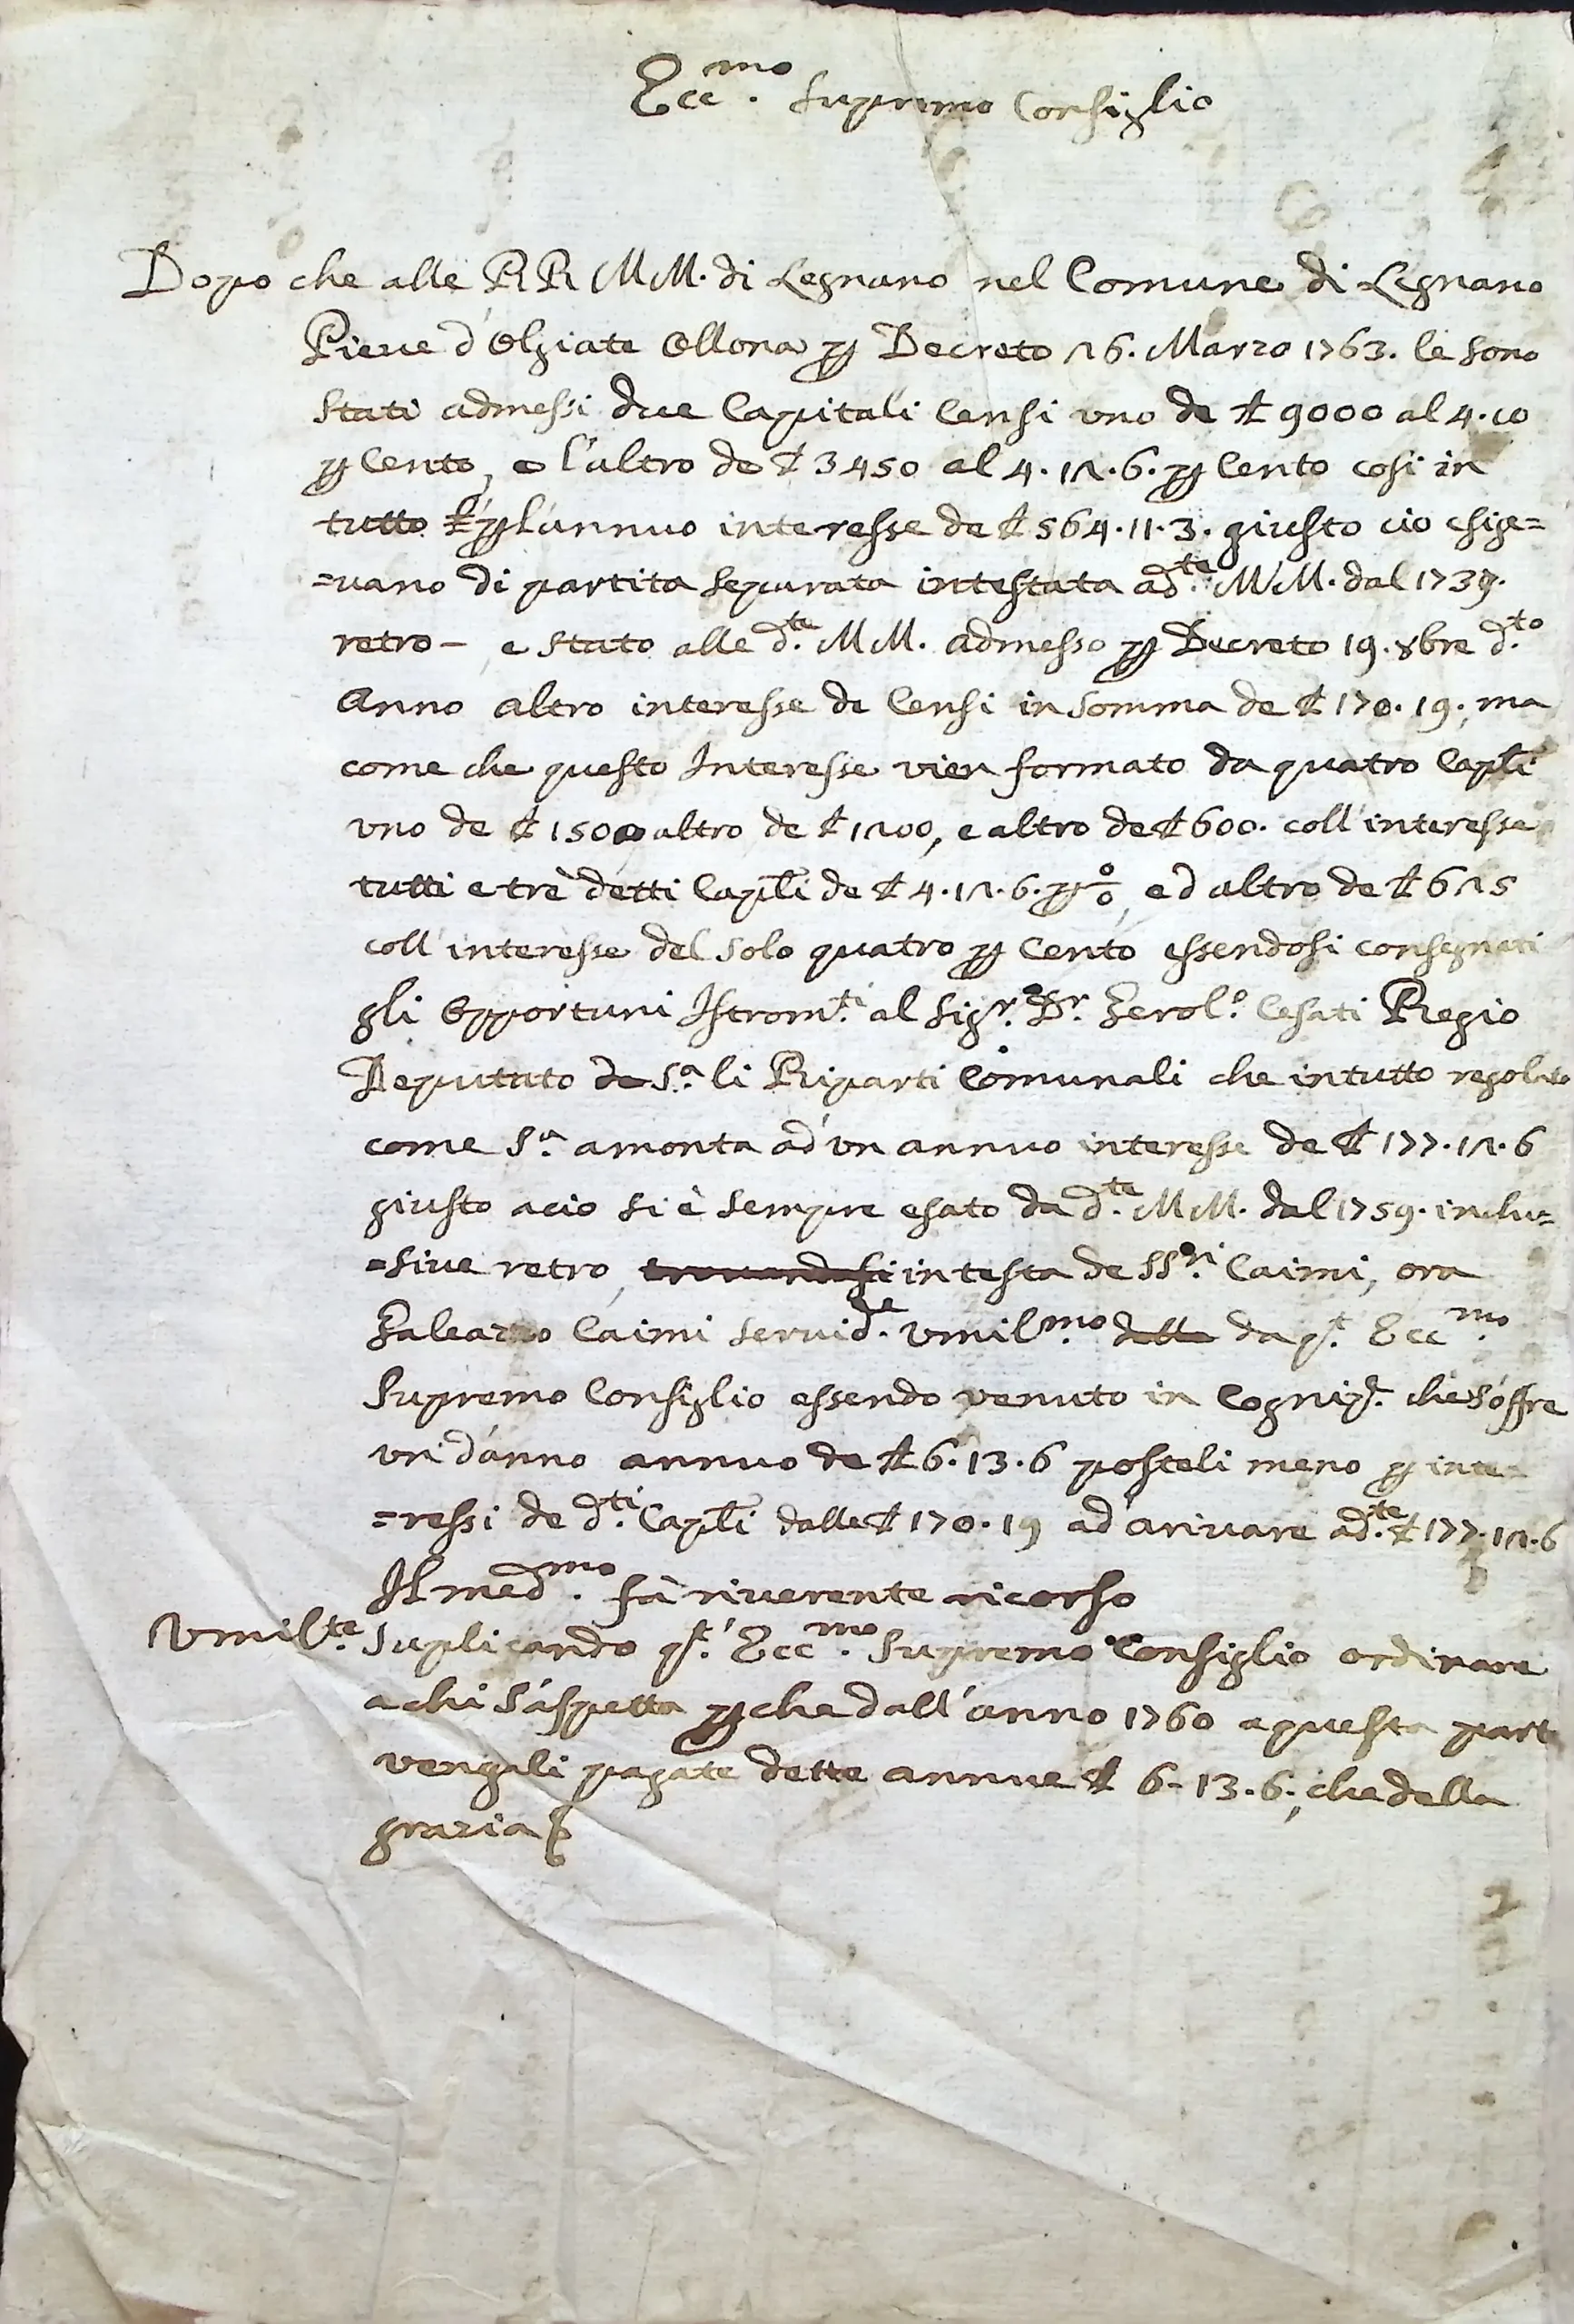 Ecc.mo Supremo Consiglio
Dopo che alle RR MM. di Legnano nel Comune di Legnano
Pieve d'Olgiate Ollona p Decreto 26. Marzo 1763. le sono
stati admessi due Capitali Censi uno de £ 9000 al 4.10
p Cento, e l'altro de £ 3450 al 4.12.6. p Cento cosi in
tutto p l'annuo interesse de £ 564.11.3. giusto cio esige=
=vano di partita separata intestata a d.te MM. dal 1739.
retro – e stato alle d.te MM. admesso p Decreto 19. 8bre d.to
Anno altro interesse de Censi in somma de £ 170.19., ma
come che questo Interesse vien formato da quatro Capli
uno de £ 1500 altro de £ 1200, e altro de £ 600. coll'interesse
tutti e trè detti Capli de £ 4.12.6. p %, ed altro de £ 625
coll'interesse del solo quatro p Cento essendosi consegnati
gli Opportuni Istrom.ti al Sig.r D.r Gerol.o Cesati Regio
Deputato de S.a li Riparti Comunali che in tutto regolato
come S.a amonta ad un annuo interesse de £ 177.12.6
giusto acio si è sempre esato da d.te MM. dal 1759. inclu=
=sive retro, trovandosi in testa de SS.ri Caimi, ora
Galeazzo Caimi servid.e umil.mo da q.t Ecc.mo
Supremo Consiglio essendo venuto in Cogniz. che s'offre
un danno annuo de £ 6.13.6 posteli meno p inte=
=ressi de d.ti Capli dalle £ 170.19 ad arivare a d.te £ 177.12.6
Il med.mo fà riverente ricorso
Umil.te Suplicando q.t' Ecc.mo Supremo Consiglio ordinare
a chi s'aspetta p che dall'anno 1760 a questa parte
vengali pagate dette annue £ 6-13.6., che della
grazia